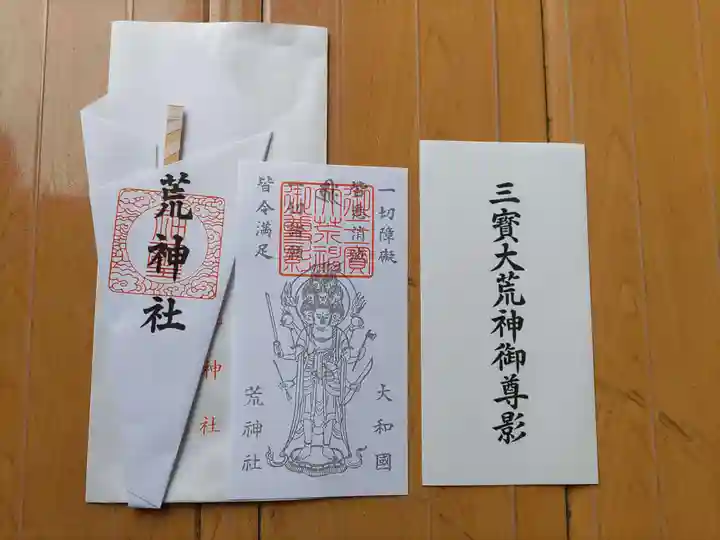 三寶大荒神御尊影
一切障礙
皆悉消
皆令満足
大和國
荒神社
荒神社
神社